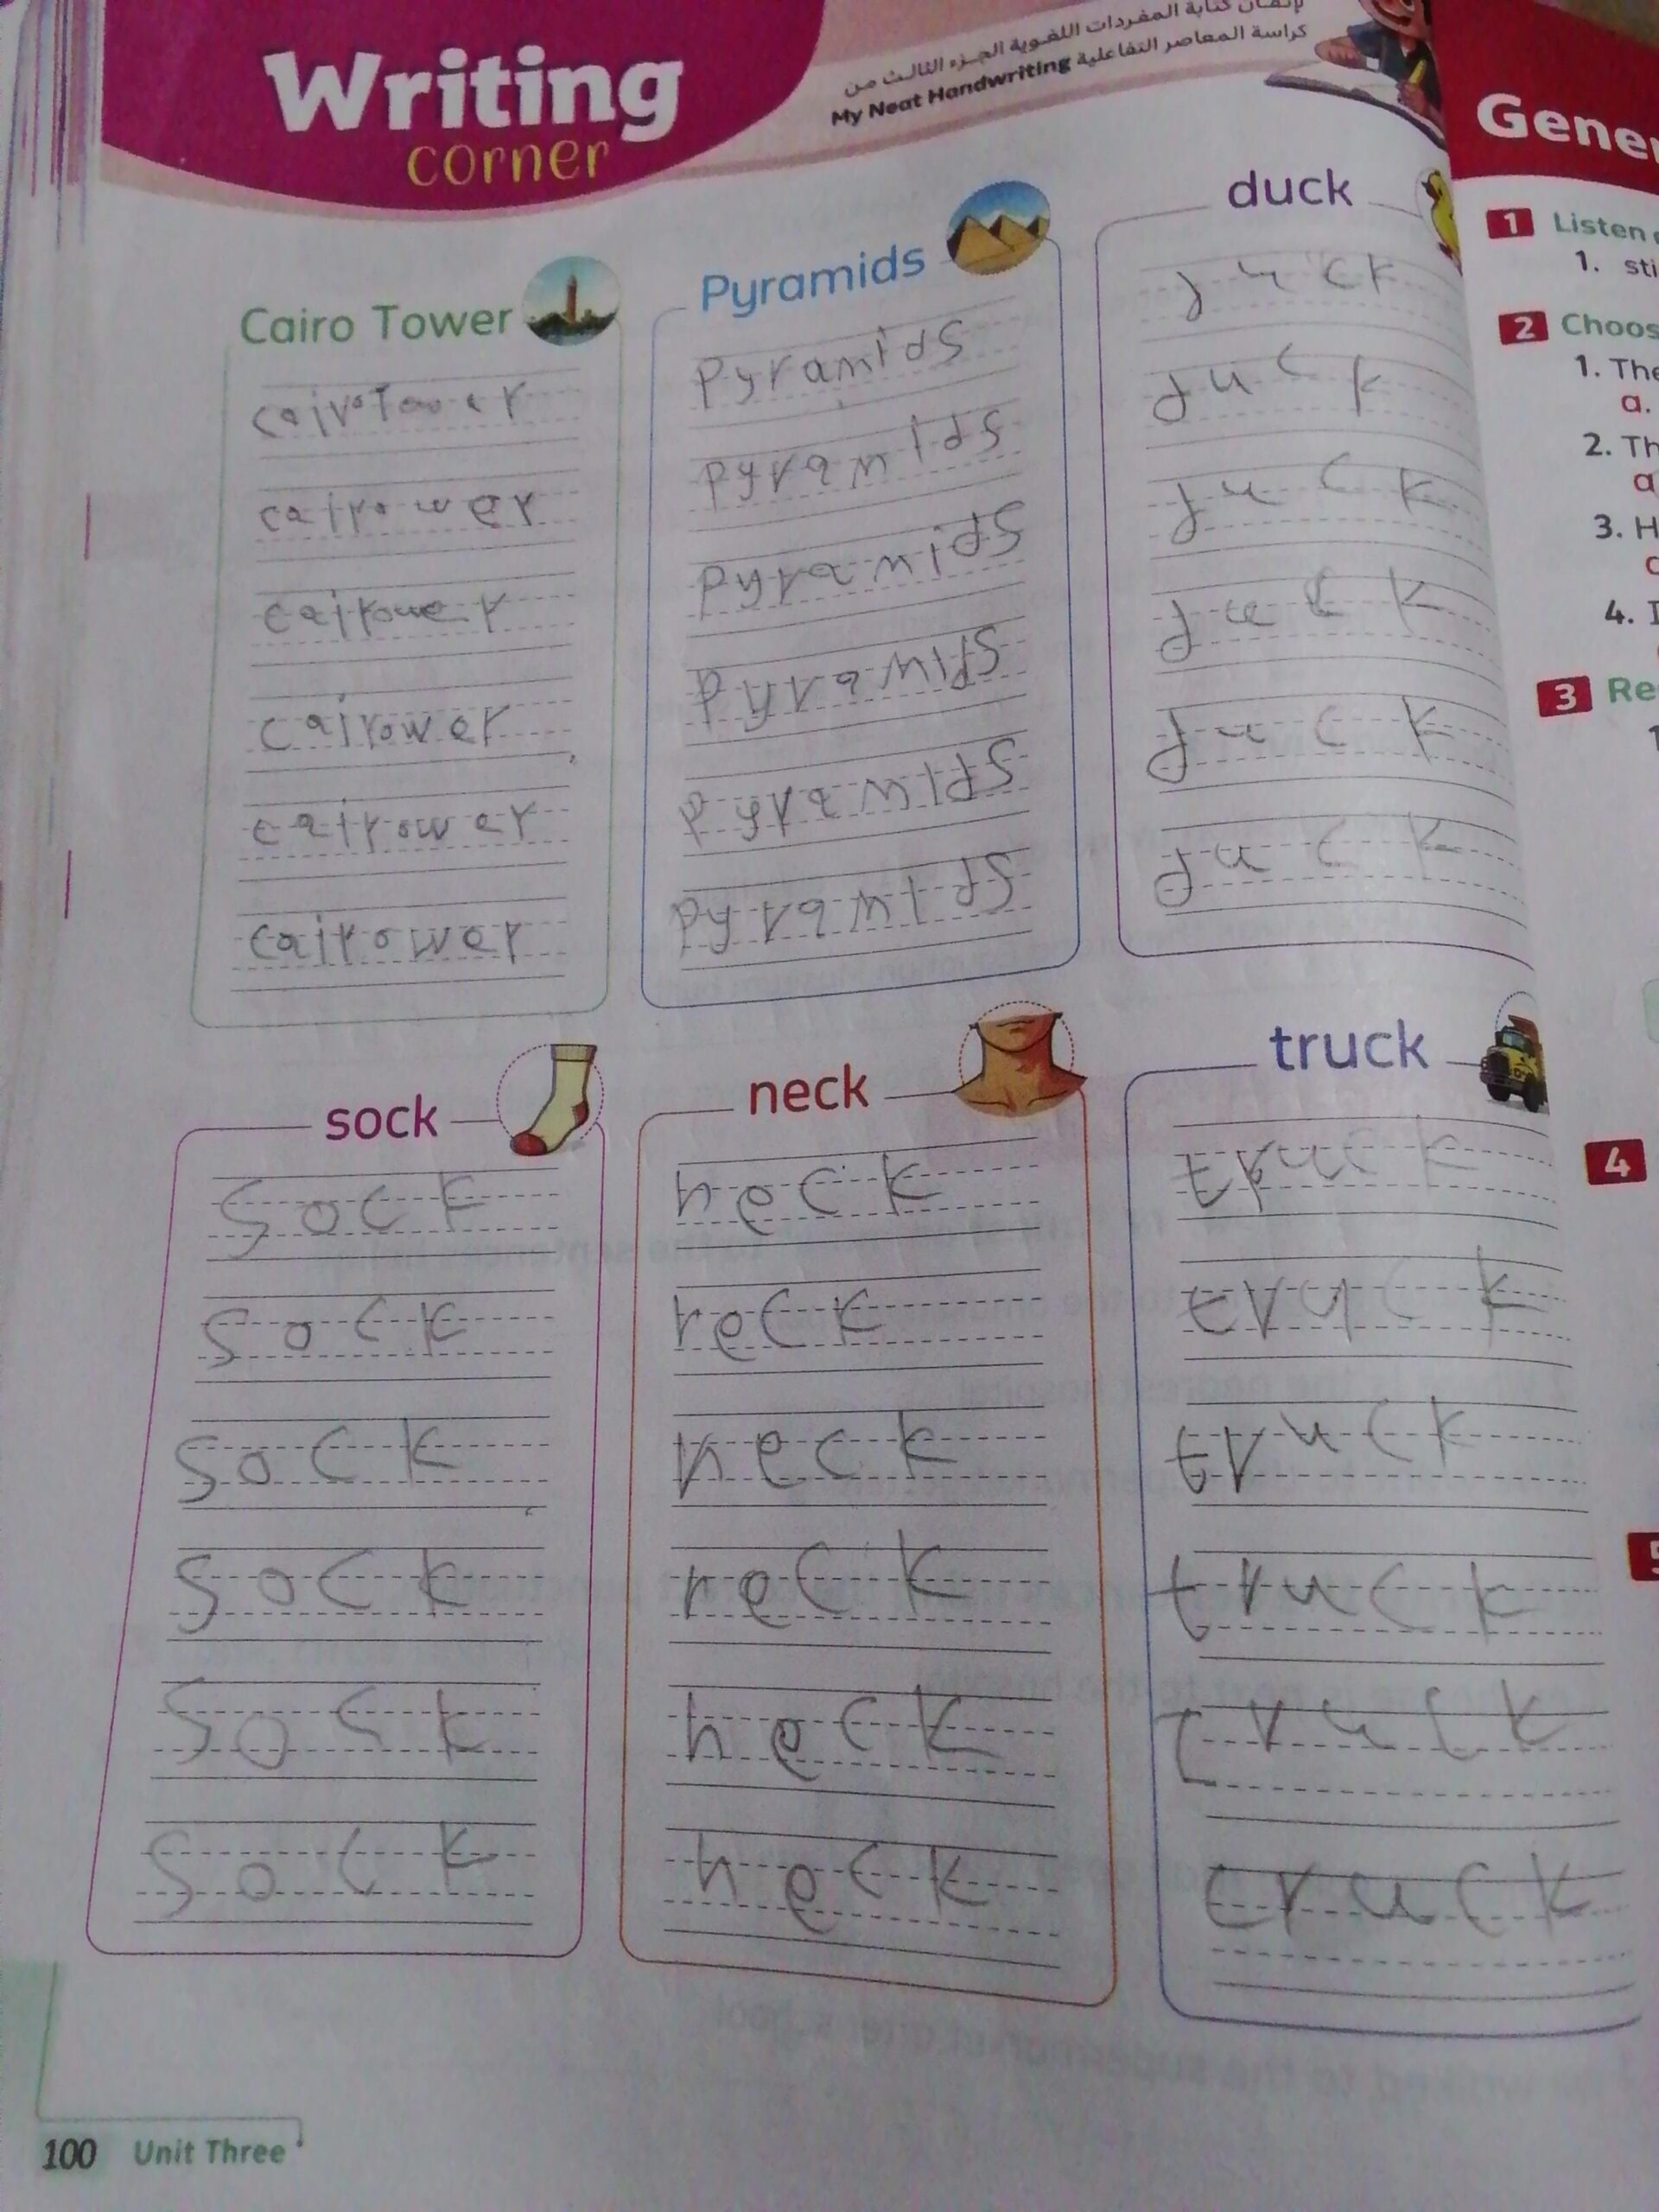 Writing
corner
لإتقان كتابة المفردات اللغوية الجزء الثالث من
كراسة المعاصر التفاعلية My Neat Handwriting
Cairo Tower
cairoTower
cairower
cairower
cairower
cairower
cairower
Pyramids
Pyramids
pyramids
pyramids
pyramids
pyramids
pyramids
duck
duck
duck
duck
duck
duck
duck
sock
sock
sock
sock
sock
sock
sock
neck
neck
reck
neck
reck
neck
neck
truck
truck
truck
truck
truck
truck
truck
100 Unit Three
1 Listen
1. sti
2
1. The
a.
2. Th
a
3. H
4. I
3 Re
4
5